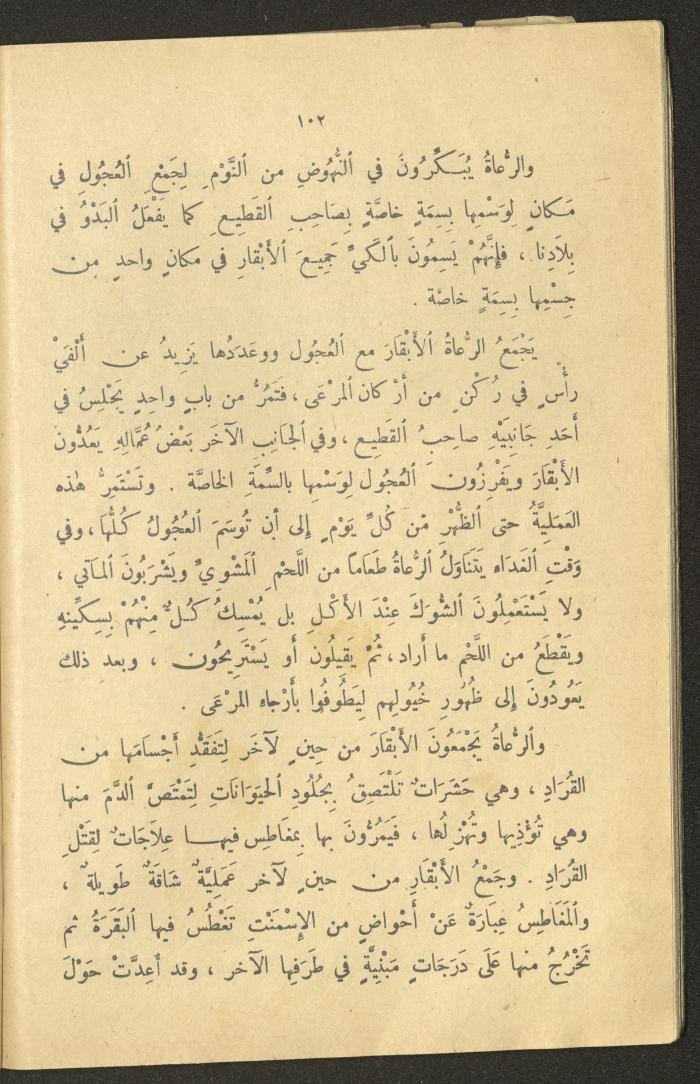 ١٠٢
والرُّعاةُ يُبَـكِّرُونَ في ٱلنُّهُوضِ من ٱلنَّوْمِ لِجَمْعِ ٱلعُجُولِ في
مَـكانٍ لِوَسْمِها بِسِمَةٍ خاصَّةٍ بِصَاحِبِ القَطِيـعِ كما يَفْعَلُ ٱلبَدْوُ في
بِلَادِنا ، فإِنَّهُمْ يَسِمُونَ بٱلكَيِّ جَمِيـعَ ٱلأَبْقارِ في مكانٍ واحدٍ من
جِسْمِها بِسِمَةٍ خاصَّة .
يَجْمَعُ الرُّعاةُ ٱلأَبْقَارَ مع ٱلعُجُول ووعَدَدُها يَزِيدُ عن أَلْفَيْ
رأْسٍ في رُكْنٍ من أَرْكان ٱلمرْعَى ، فتَمُرُّ من بابٍ واحِدٍ يَجْلِسُ في
أَحَدِ جَانِبَيْهِ صاحِبُ القَطِيـع ، وفي الجَانِبِ الآخَر بَعْضُ عُمَّالِهِ يَعُدُّونَ
الأَبْقَارَ ويَفْرِزُونَ ٱلعُجُول لِوَسْمِها بالسِّمَةِ الخاصَّة . وتَسْتَمِرُّ هٰذه
العَمَلِيَّةُ حتى ٱلظُّهْرِ مّن كُلِّ يَوْمٍ إلى أن تُوسَمَ ٱلعُجُولُ كُـلُّها ، وفي
وَقْتِ ٱلغَدَاء يَتَنَاوَلُ ٱلرُّعاةُ طَعَامًا من اللَّحْمِ ٱلمَشْوِيِّ ويَشْرَبُونَ ٱلمـآتي ،
ولا يَسْتَعْمِلُونَ ٱلشُّوَكَ عِنْدَ الأَكْـلِ بل يُمْسِكُ كُـلٌّ مِنْهُمْ بِسِكِّينِهِ
ويَقْطَعُ من اللَّحْم ما أَراد ، ثُمَّ يَقِيلُون أَو يَسْتَرِيحُون ، وبعد ذلك
يَعُودُونَ إلى ظُهُورِ خُيُولِهم لِيَطُوفُوا بأَرْجاءِ المرْعَى .
وٱلرُّعاةُ يَجْمَعُونَ الأَبْقَارَ من حِينٍ لآخَر لِتَفَقُّدِ أَجْسَامَها من
القُرَادِ ، وهي حَشَرَاتٌ تَلْتَصِقُ بِجُلُودِ ٱلحَيَوَانَاتِ لِتَمْتَصَّ ٱلدَّمَ منها
وهي تُؤْذِيها وتُهْزِلُها ، فَيَمُرُّونَ بها بِمغَاطِس فيهـا عِلَاجَاتٌ لِقَتْلِ
القُرَادِ . وجَمْعُ الأَبْقَارِ من حينٍ لآخر عَمَلِيَّةٌ شَاقَةٌ طَوِيلةٌ ،
وٱلمَغَاطِسُ عِبَارَةٌ عَنْ أَحْواضٍ من الإِسْمَنْتِ تَغْطُسُ فيها ٱلبَقَرَةُ ثم
تَخْرُجُ منها عَلَى دَرَجَاتٍ مَبْنِيَّةٍ في طَرَفِها الآخر ، وقد أُعِدَّتْ حَوْلَ